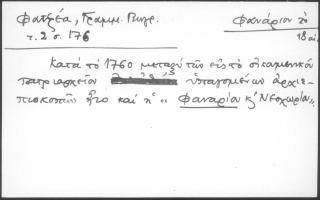 Φατζέα, Γραμμ. Γεωγρ.
τ. 2 σ. 176
Φανάριον το
18 αἰ.
Κατά τό 1760 μεταξύ τῶν εἰς τό οἰκουμενικόν
πατριαρχεῖον ὑπαγομένων ἀρχιε-
πισκοπῶν ἦτο καί ἡ "Φαναρίου κ' Νεοχωρίου"